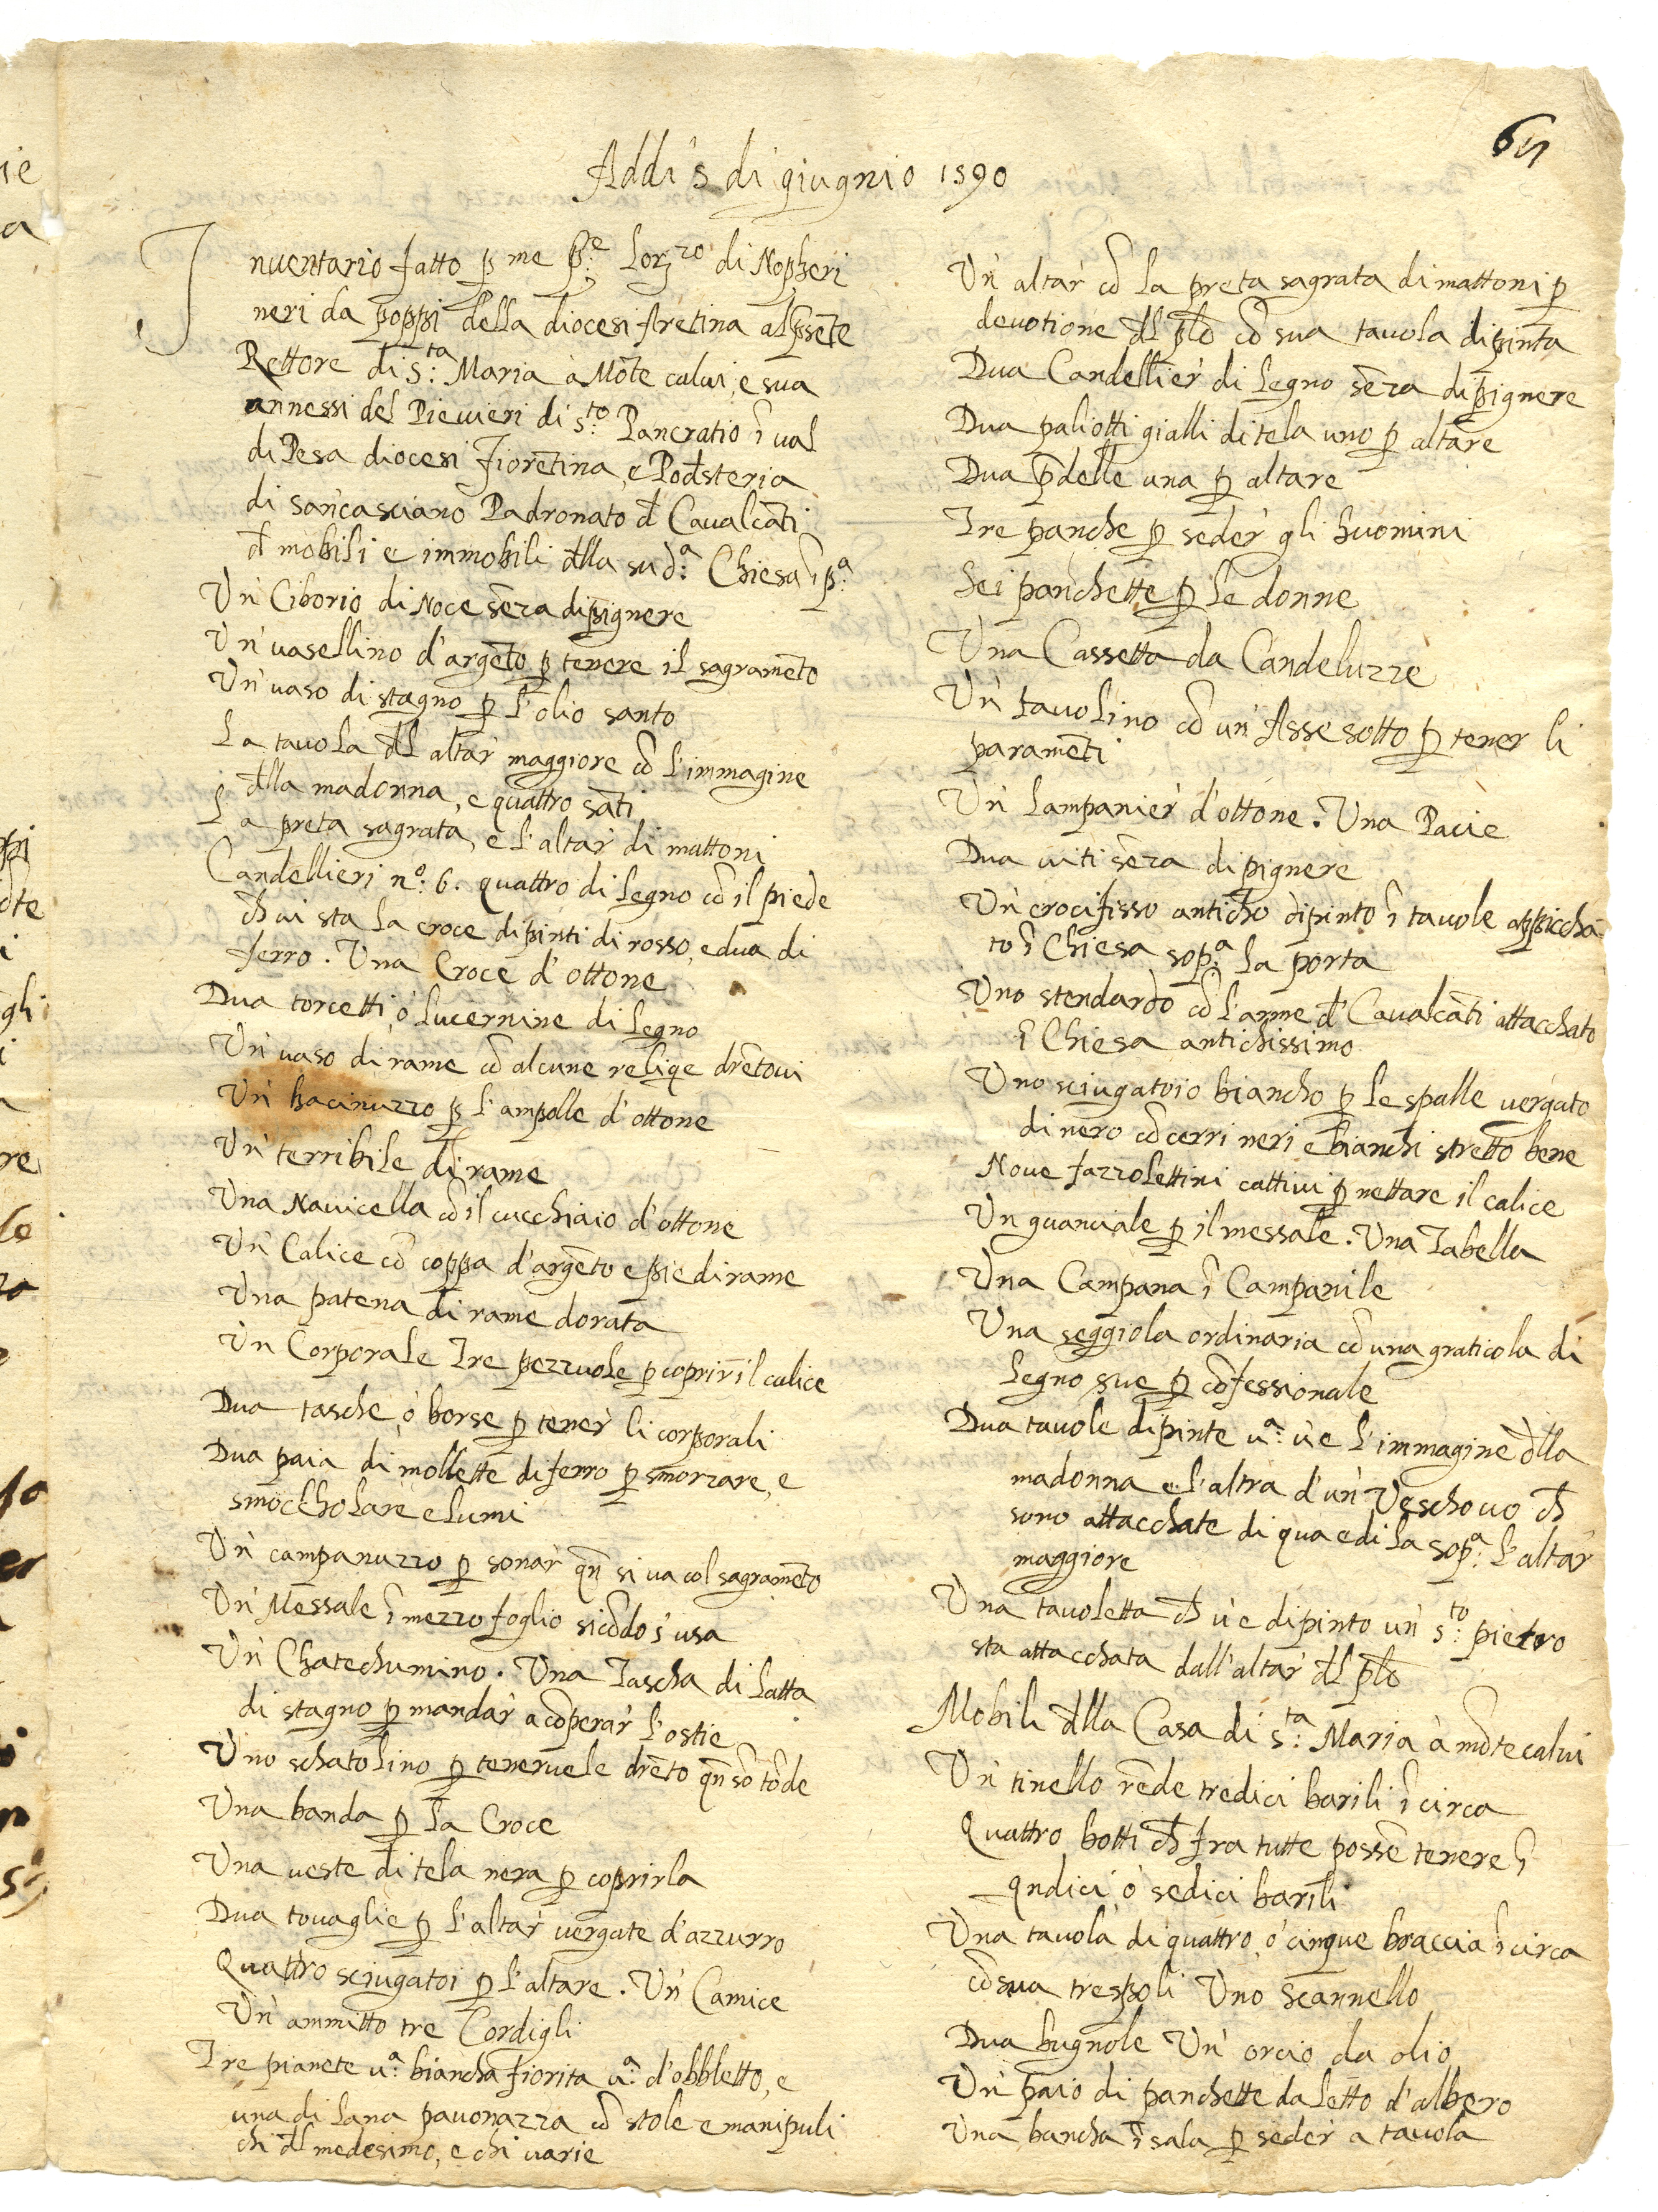 65
Addi 5 di giugno 1590
Inuentario fatto ꝑ me p.e Lorzo di Nopheri
neri da poppi della diocesi Aretina al ꝑsēte
Rettore di s.ta Maria à Mōte calui, e sua
annessi del Piuieri di s.to Pancratio ĩ ual
di Pesa diocesi fiorētina, e Podsteria
di sancasciano Padronato đ Cavalcāti
đ mobili e immobili đlla sud.a Chiesa ĩ p.a
Un' Ciborio di Noce sēza dipignere
Un' uasellino d'argēto ꝑ tenere il sagramēto
Un' uaso di stagno ꝑ l'olio santo
La tauola đl altar' maggiore cō l'immagine
đlla madonna, e quattro sāti
La preta sagrata, e l'altar' di mattoni
Candellieri n.o 6. quattro di legno cō il piede
cħ ui sta la croce dipinti di rosso, e dua di
ferro. Una Croce d'ottone
Dua torcetti, ó lucernine di legno
Un' uaso di rame cō alcune reliqe drētoui
Un' bacinuzzo ꝑ l'ampolle d'ottone
Un' terribile di rame
Una Nauicella cō il cucchiaio d'ottone
Un' Calice cō coppa d'argēto e piedirame
Una patena di rame dorata
Un Corporale Tre pezzuole ꝑ coprir' il calice
Dua tasche, ó borse ꝑ tener' li corporali
Dua paia di mollette di ferro ꝑ smorzare, e
smoccholare e lumi
Un' campanuzzo ꝑ sonar' qn̄ si ua col sagramēto
Un' Messale ĩ mezzo foglio sicōdo s'usa
Un' Chatechumino. Una Tascha di latta
di stagno ꝑ mandar' a cōperar' l'ostie
Uno schatolino ꝑ teneruele drēto qn̄ sō tōde
Una banda ꝑ la Croce
Una ueste di tela nera ꝑ coprirla
Dua touaglie ꝑ l'altar' uergate d'azzurro
Quattro sciugatoi ꝑ l'altare. Un' Camice
Un' ammitto tre Cordigli
Tre pianete u.a biancha fiorita u.a d'obbletto, e
una di lana pauonazza cō stole e manipuli
chi đl medesimo, e chi uarie
Un' altar' cō la preta sagrata di mattoni ꝑ
deuotione đl ꝑlo cō sua tauola dipinta
Dua Candellier' di legno sēza dipignere
Dua paliotti gialli di tela uno ꝑ altare
Dua p̄delle una ꝑ altare
Tre panche ꝑ seder' gli huomini
Sei panchette ꝑ le donne
Una Cassetta da Candeluzze
Un' tauolino cō un' Asse sotto ꝑ tener li
paramēti
Un' lampanier' d'ottone. Una Pacie
Dua uiti sēza dipignere
Un' crocifisso anticho dipinto ĩ tauole appiccha-
to ĩ Chiesa sop.a la porta
Uno stendardo cō l'arme đ Caualcāti attacchato
ĩ Chiesa antichissimo
Uno sciugatoio biancho ꝑ le spalle uergato
di nero cō cerri neri e bianchi stretto bene
Noue fazzolettini cattiui ꝑ nettare il calice
Un guanciale ꝑ il messale. Una Tabella
Una Campana ĩ Campanile
Una seggiola ordinaria cō una graticola di
legno sue ꝑ cōfessionale
Dua tauole dipinte u.a u'e l'immagine đlla
madonna e l'altra d'un' Veschouo cħ
sono attacchate di qua e di la sop.a l'altar'
maggiore
Una tauoletta cħ u'e dipinto un' s.to pietro
sta attacchata dall'altar' đl ꝑlo
Mobili đlla Casa di s.ta Maria à mōtecalui
Un' tinello rēde tredici barili ĩ circa
Quattro botti cħ fra tutte possē tenere ĩ
qndici ó sedici barili
Una tauola di quattro, ó cinque braccia ĩ circa
cō sua trespoli Uno Scannello
Dua bugnole Un' orcio da olio
Un' paio di panchette da letto d'albero
Una bancha ĩ sala ꝑ seder' a tauola